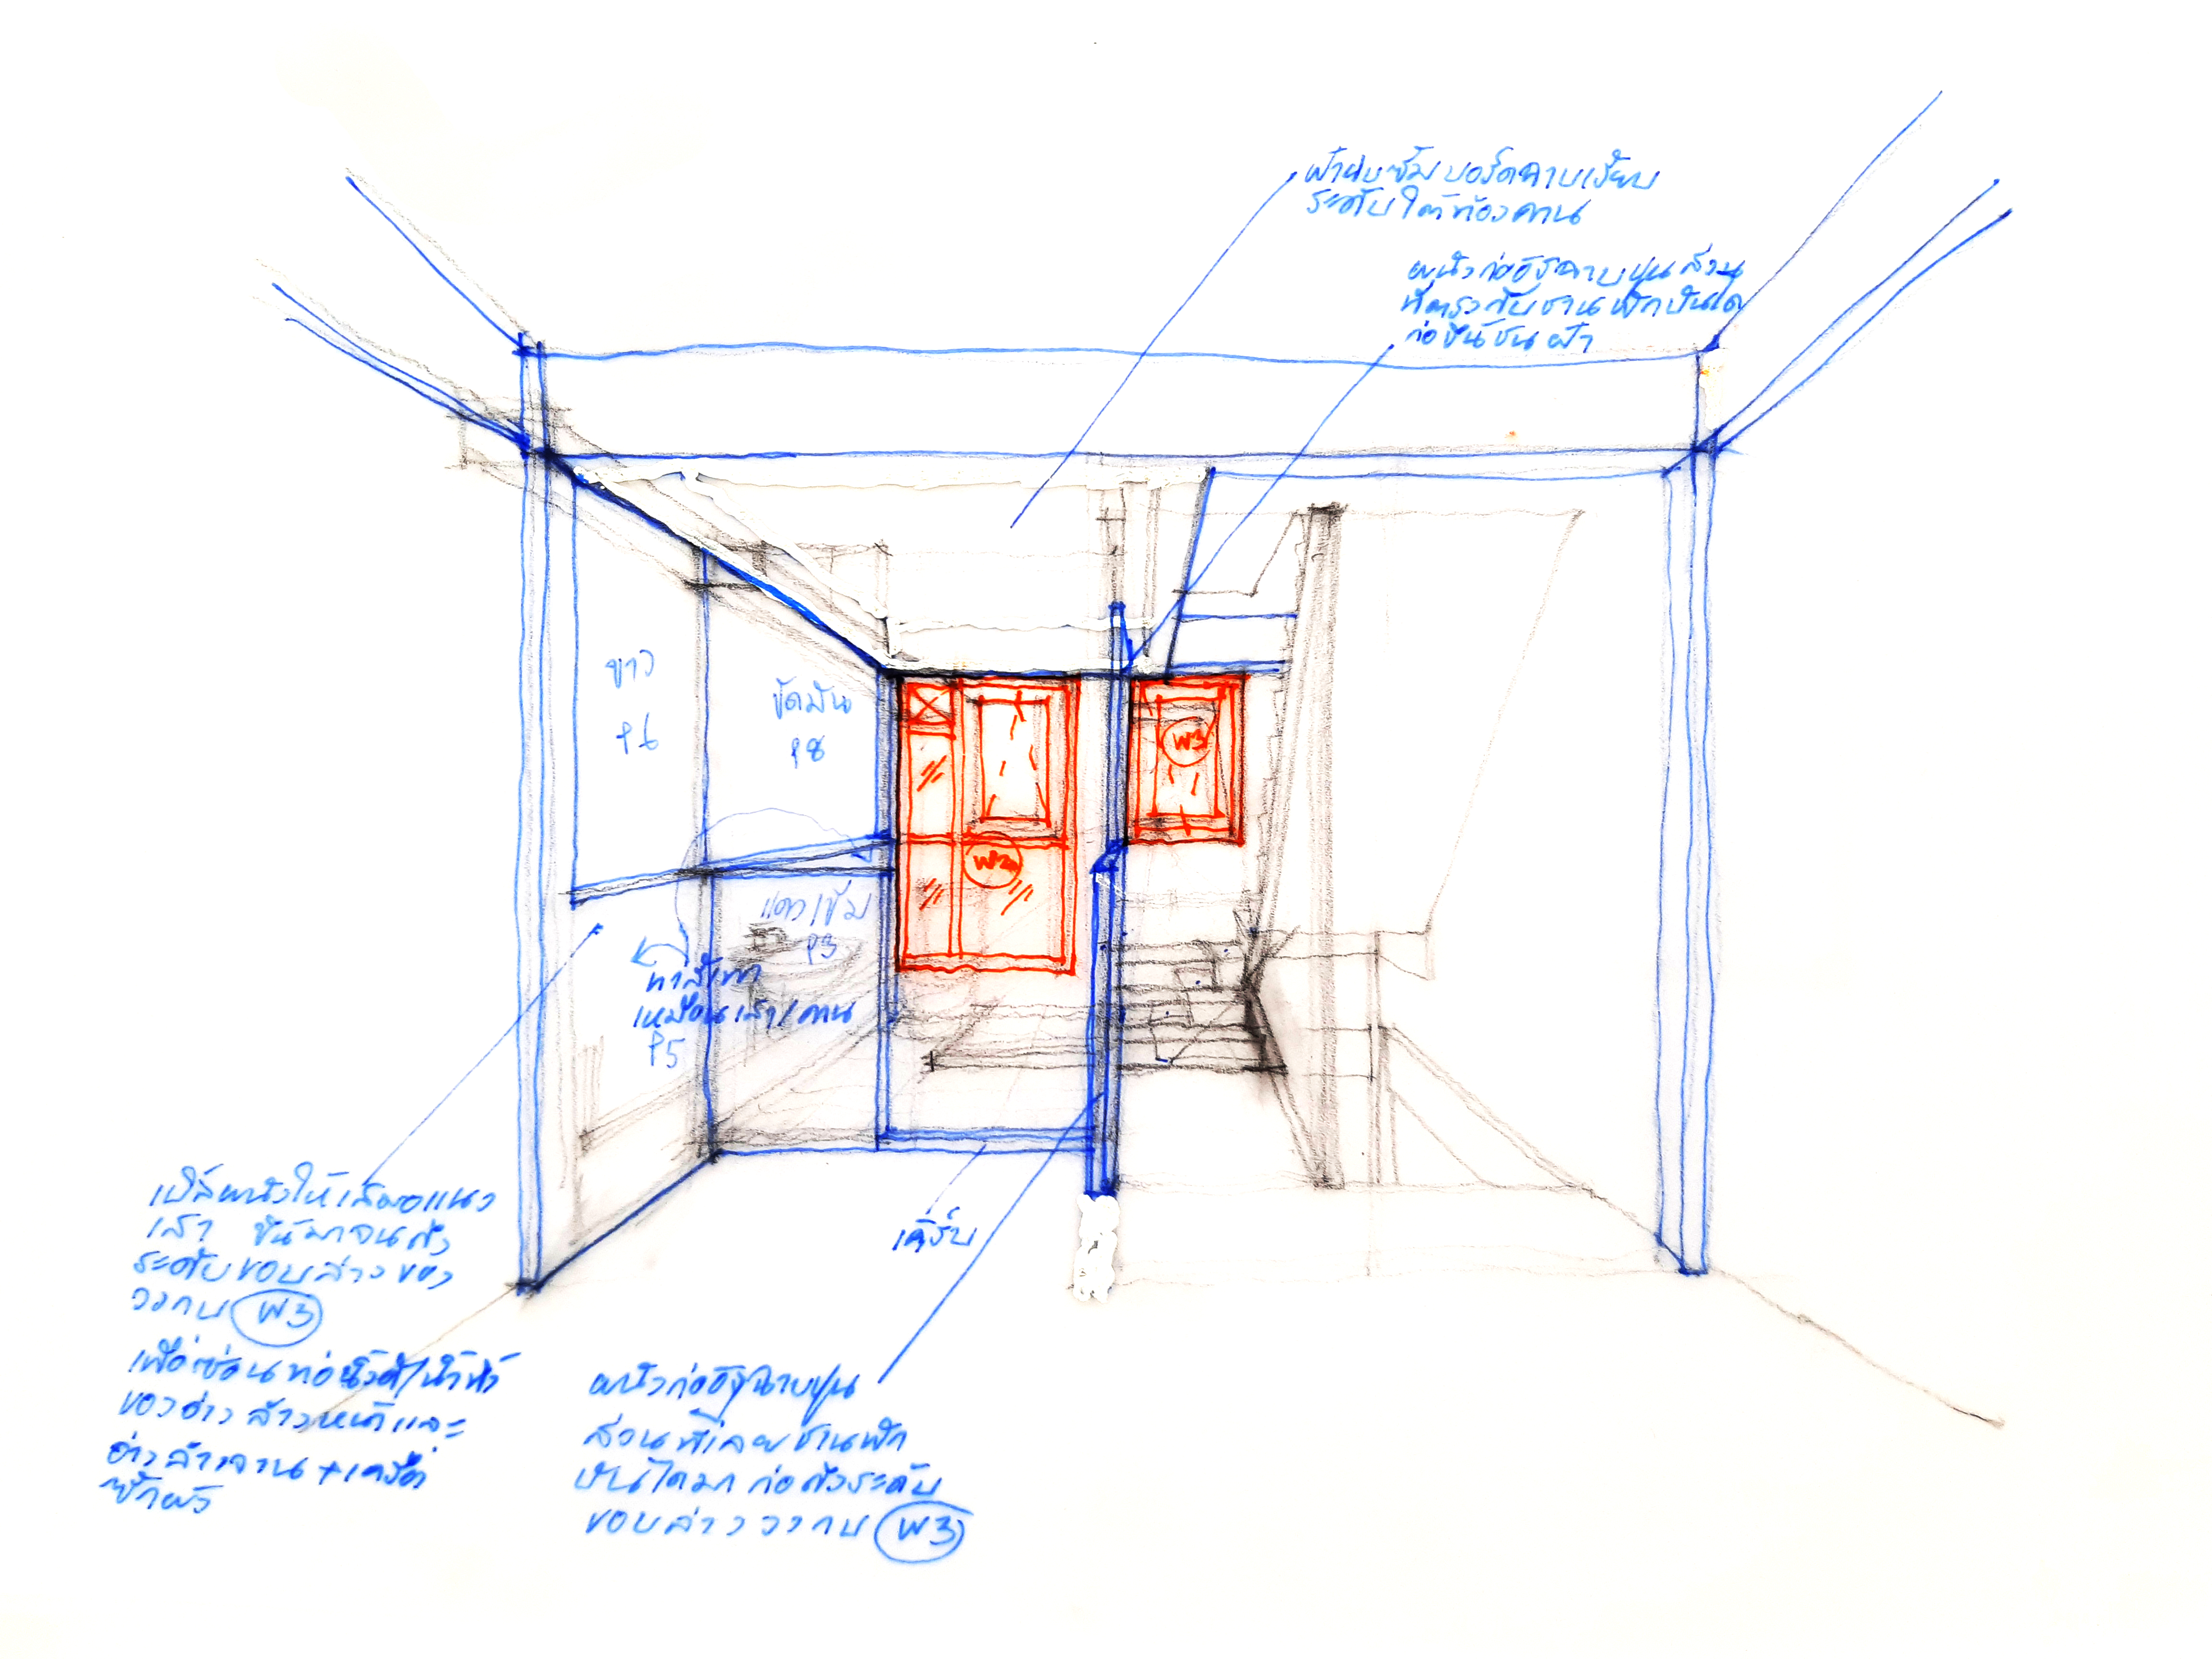 ฝ้ายิบซั่มบอร์ดฉาบเรียบ
ระดับใต้ท้องคาน
ผนังก่ออิฐฉาบปูนส่วน
ที่ตรงกับชานพักบันได
ก่อขึ้นชนฝ้า
ขาว
P6
ขัดมัน
P8
W3
W2a
แดงเข้ม
P3
ทาสีเทา
เหมือนเสา/คาน
P5
เคิร์บ
ผนังให้เสมอแนว
เสา ขึ้นมาจนถึง
ระดับขอบล่างของ
วงกบ W3
เพื่อซ่อนท่อน้ำดี/น้ำทิ้ง
ของอ่างล้างหน้าและ
อ่างล้างจาน+เครื่อง
ซักผ้า
ผนังก่ออิฐฉาบปูน
ส่วนที่เลยชานพัก
บันไดมา ก่อถึงระดับ
ขอบล่างวงกบ W3